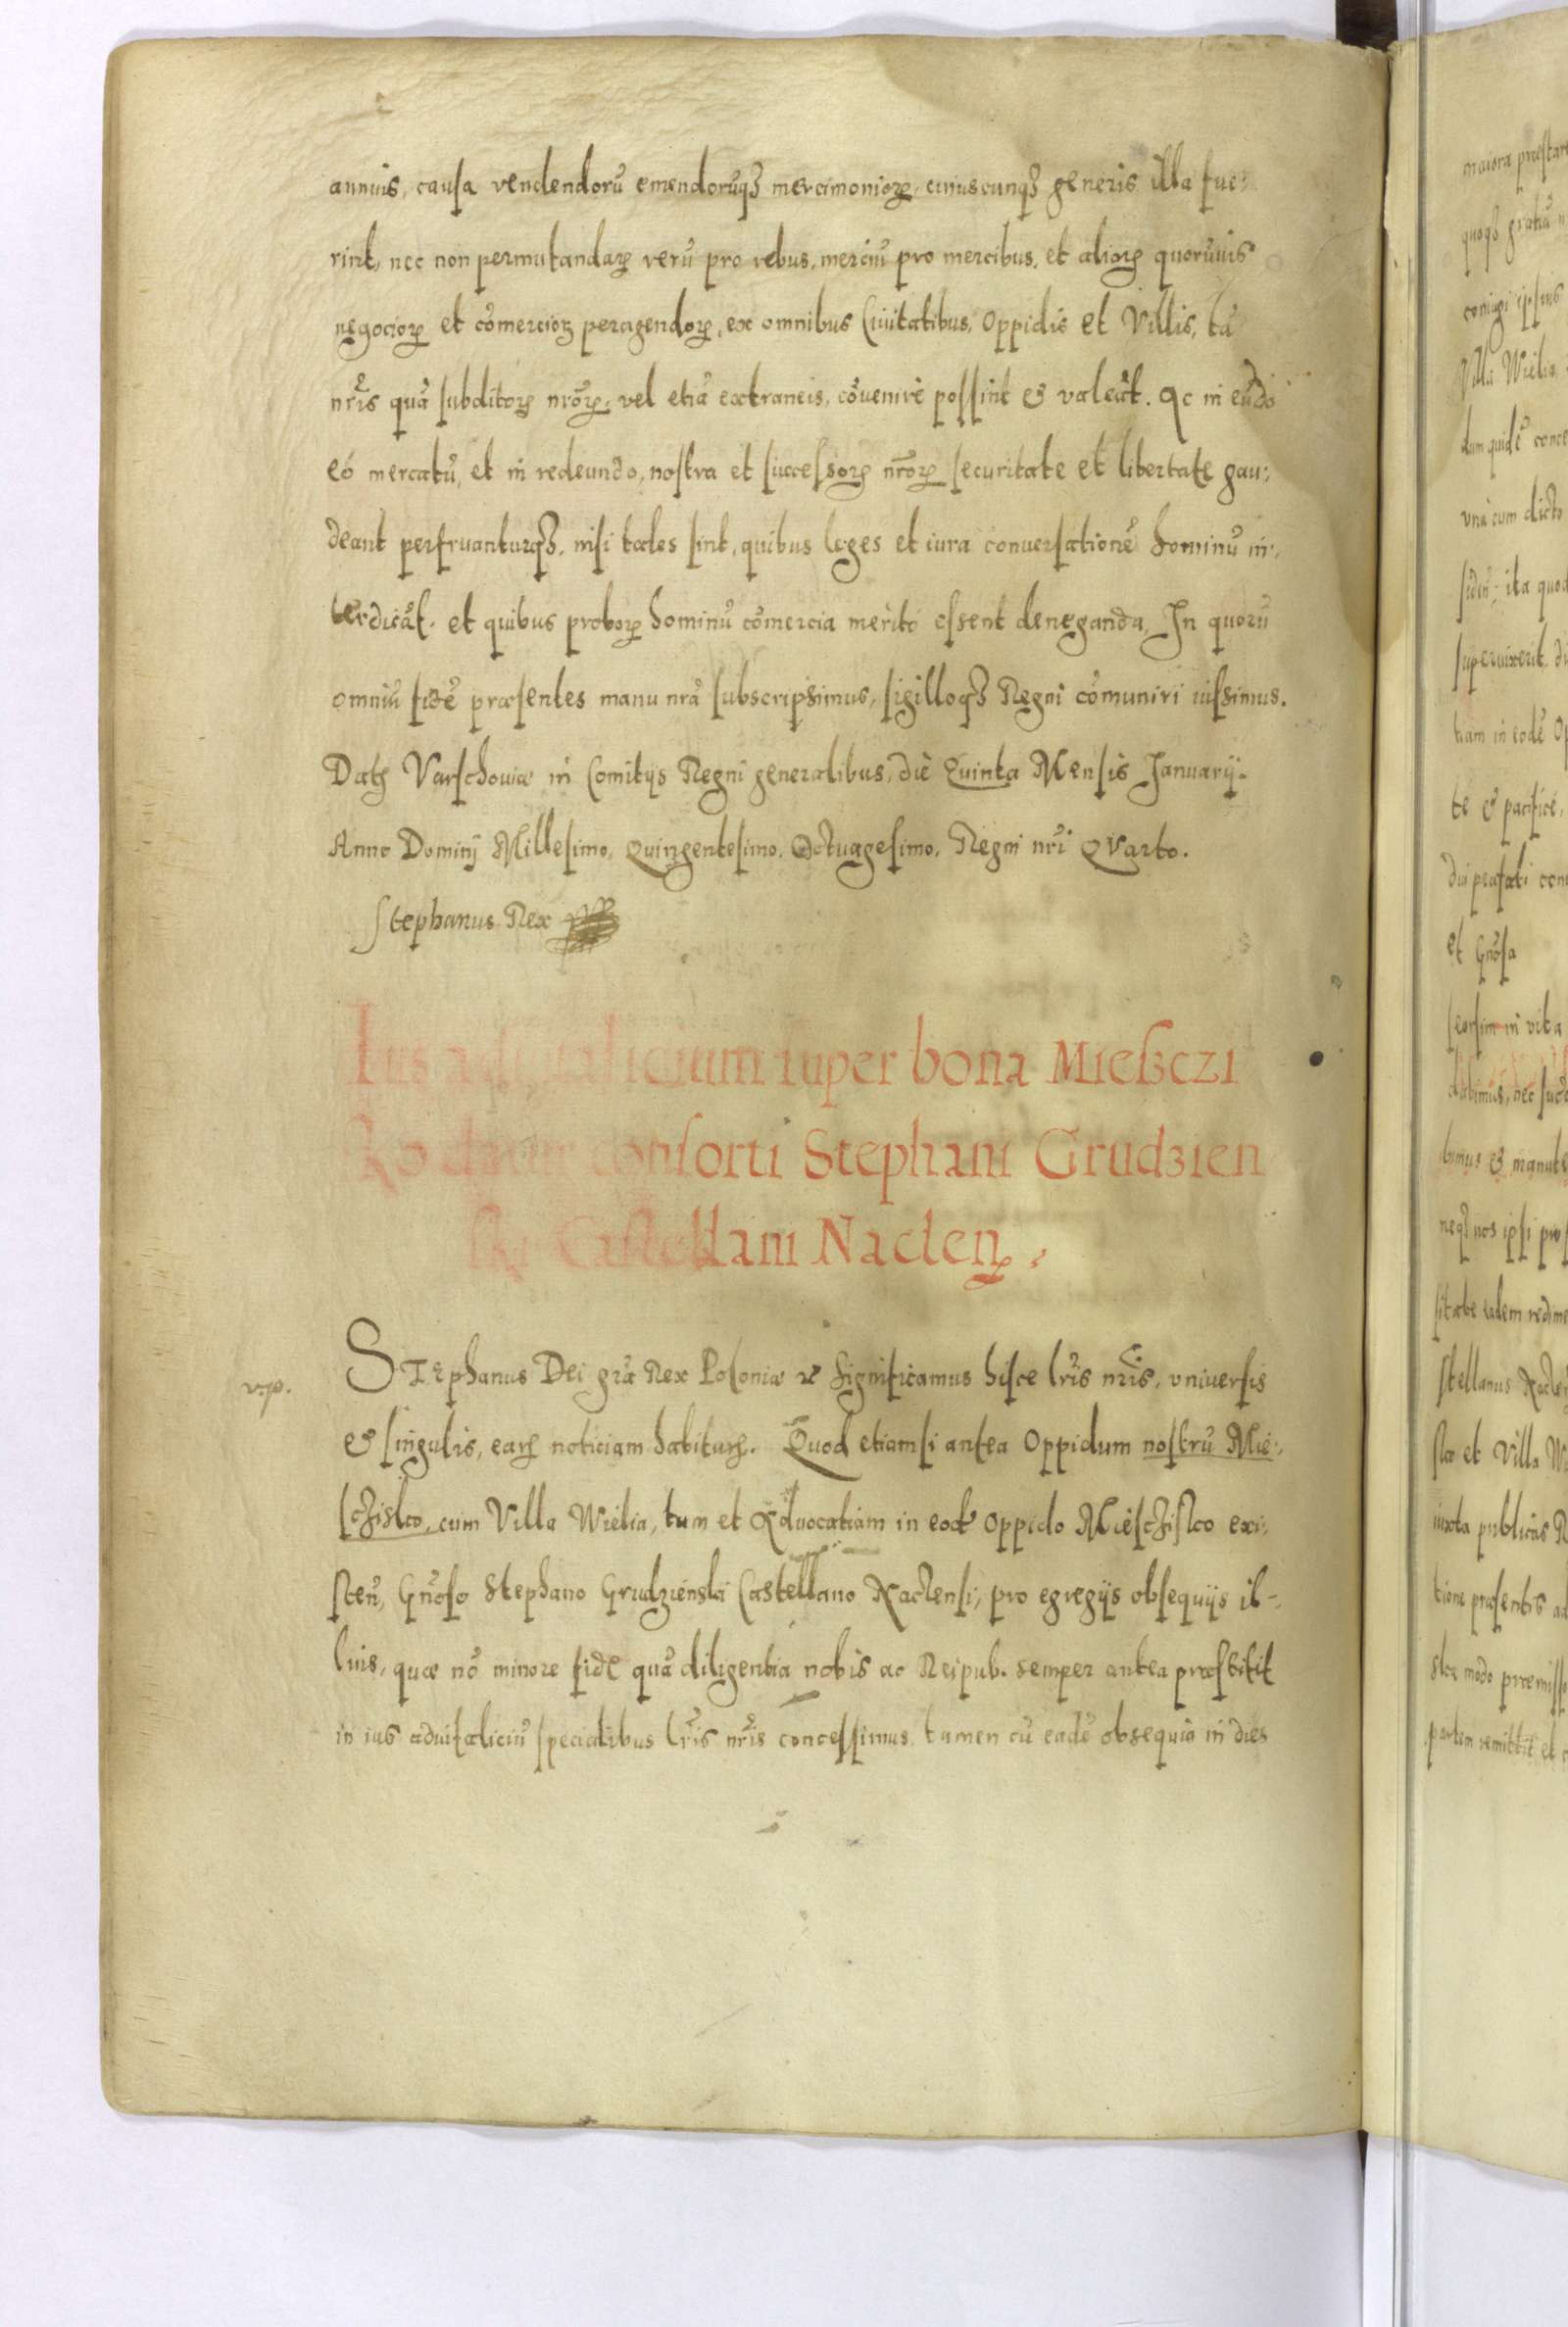 annuis, causa vendendorũ emendorũqꝫ mercimonioꝝ, cuiuscunqꝫ generis illa fue:
rint, nec non permutandaꝝ rerũ pro rebus, merciũ pro mercibus, et alioꝝ quorũuis
negocioꝝ et cõmercioꝝ peragendoꝝ, ex omnibus Ciuitatibus, Oppidis et Villis, tã
nr̃is quã subditoꝝ nr̃oꝝ, vel etiã extraneis, cõuenire possint & valeãt. Ac in eũdo
eò mercatũ, et in redeundo, nostra et successoꝝ nr̃oꝝ securitate et libertate gau:
deant perfruanturqꝫ, nisi tales sint, quibus leges et iura conuersationẽ hominũ in:
terdicãt, et quibus proboꝝ hominũ cõmercia merito essent deneganda, In quorũ
omniũ fidẽ præsentes manu nr̃a subscripsimus, sigilloqꝫ Regni cõmuniri iussimus.
Datꝭ Varschouiæ in Comitijs Regni generalibus, die Quinta Mensis Januarij.
Anno Dominj Millesimo, Quingentesimo, Octuagesimo, Regni nr̃i Quarto.
Stephanus Rex
Ius aduitalicium super bona Miesczi
sko datum consorti Stephani Grudzien
ski Castellani Naclenꝭ.
v.p.
Stephanus Dei gr̃a Rex Poloniæ Significamus hisce lr̃is nr̃is, vniuersis
& singulis, earꝭ noticiam habiturꝭ. Quod etiamsi antea Oppidum nostrũ Mie:
sczisko, cum Villa Wielia, tum et Aduocatiam in eodẽ Oppido Miesczisko exi:
steñ, Gñoso Stephano Grudzienski Castellano Naclensi, pro egregijs obsequijs il:
lius, quæ nõ minore fide quã diligentia nobis ac Reipub. semper antea præstitit
in ius aduitaliciũ specialibus lr̃is nr̃is concessimus, tamen cũ eadẽ obsequia in dies
maiora præstar
quoqꝫ gratiã
coniugi ipsius
Villa Wielia
dum quidẽ conce
vnà cum dicto
ita quod
superuixerit
tiam in eodẽ Op
te & pacifice,
præfati con
et Gñosa
seorsim in vita
bimus & manute
neqꝫ nos ipsi pro
eadem redime
stellanus Naclen
et Villa Wi
iuxta publicas R
tione præsentis
modo præmisso
partem remittit et